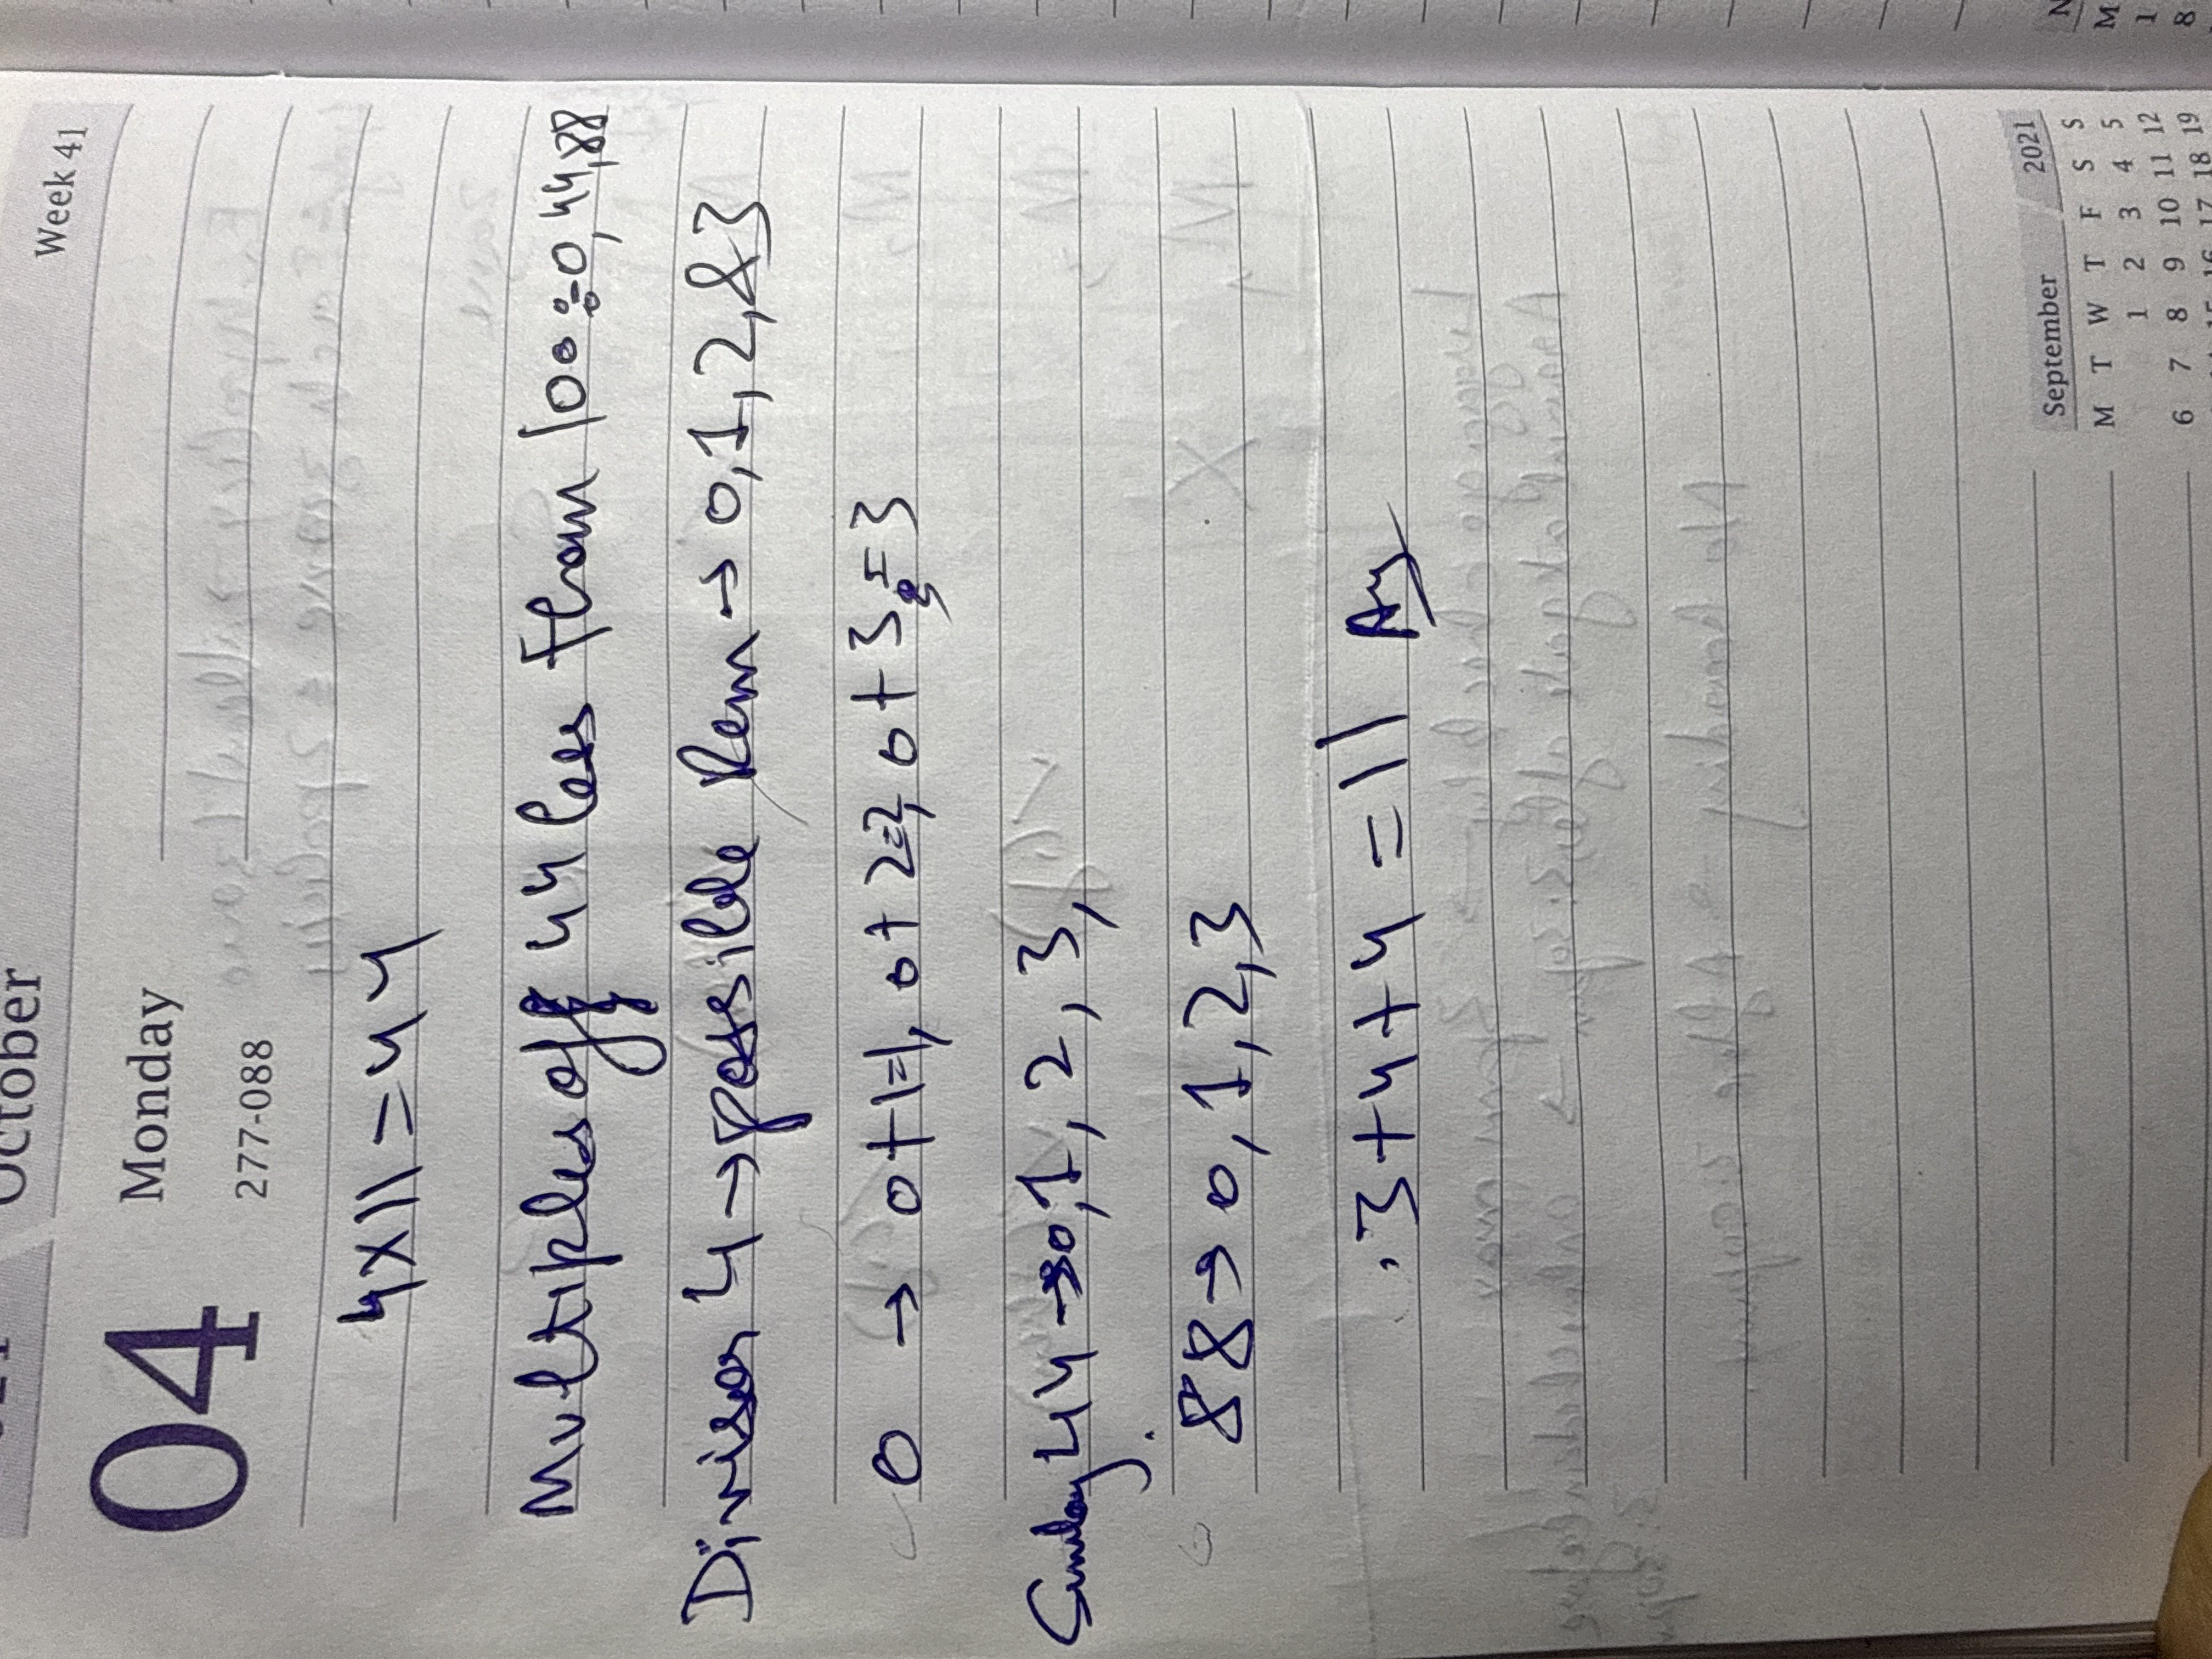 October
Week 41
04
Monday
277-088
4X11 = 44
Multiples of 44 less than 100 :- 0, 44, 88
Divisor 4 → possible Rem → 0, 1, 2, & 3
0 → 0+1=1, 0+2=2, 0+3=3
44 → 0, 1, 2, 3,
88 → 0, 1, 2, 3
3+4+4 = 11 Ans
September 2021
M T W T F S S
1 2 3 4 5
6 7 8 9 10 11 12
16 17 18 19
M
1
8